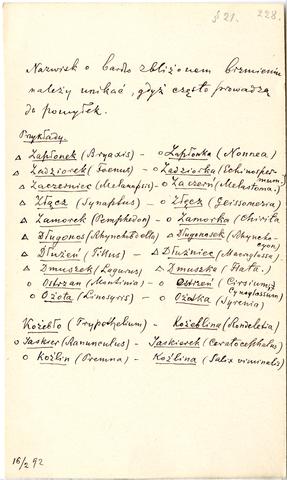 § 21. 228.
Nazwisk o bardzo zbliżonem brzmieniu
należy unikać, gdyż często prowadzą
do pomyłek.
Przykłady.
△ Zapłonek (Bryaxis) – o Zapłonka (Nonnea)
△ Zadziorek (Foenus) – o Zadziorka (Echinospermum)
△ Zaczerniec (Melanopsis) – o Zaczern (Melastoma)
△ Złącz (Synaptus) – o Złęcz (Geissomeria)
△ Zamorek (Pemphedon) – o Zamorka (Chirita
△ Długonos (Rhynchobdella) – △ Długonosek (Rhynchocyon)
△ Dłużeń (Tillus) – △ Dłużnice (Macroglossa)
△ Dmuszek (Lagurus) – △ Dmuszka (
o Ostrzan (– o Ostrzeń (Cirsium,
Cynoglossum)
o Ożota (Linosyris) – o Ożotka (Syrenia)
Kożebło (Trypethelum) – Kożeblina (Rondeletia)
o Jaskier (Ranunculus) – Jaskierek (Ceratocephalus)
o Koźlin (Premna) – Koźlina (Salix viminalis)
16/2 92